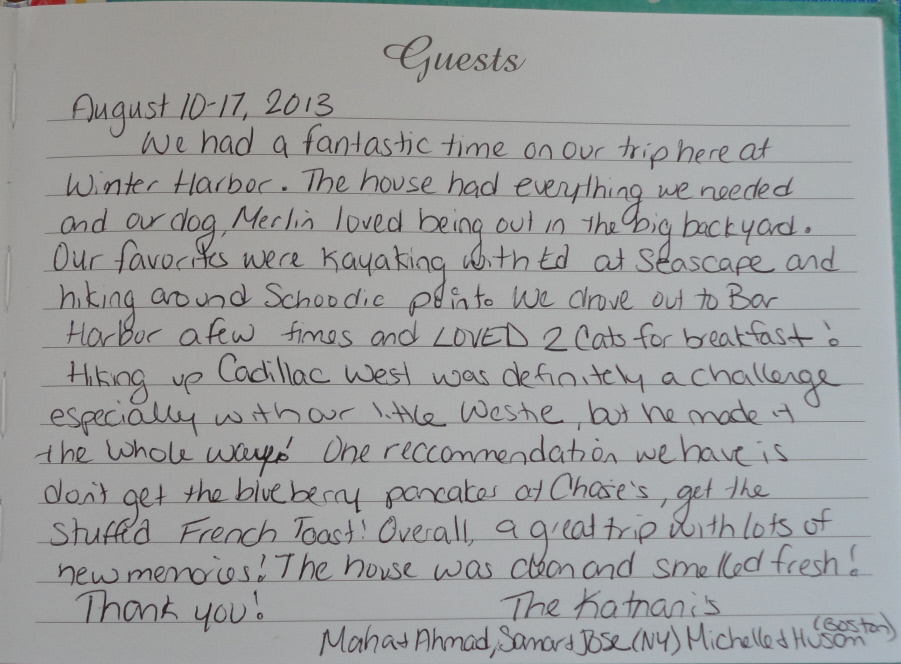 Guests
August 10-17, 2013
We had a fantastic time on our trip here at
Winter Harbor. The house had everything we needed
and our dog, Merlin loved being out in the big backyard.
Our favorites were Kayaking with Ed at Seascape and
hiking around Schoodic point. We drove out to Bar
Harbor a few times and LOVED 2 Cats for breakfast!
Hiking up Cadillac West was definitely a challenge
especially with our little Westie, but he made it
the whole way! One reccommendation we have is
don't get the blueberry pancakes at Chase's, get the
Stuffed French Toast! Overall, a great trip with lots of
new memories! The house was clean and smelled fresh!
Thank you! The Katnani's
Maha + Ahmad, Samar + Jose (NY) Michelle + Huson (Boston)